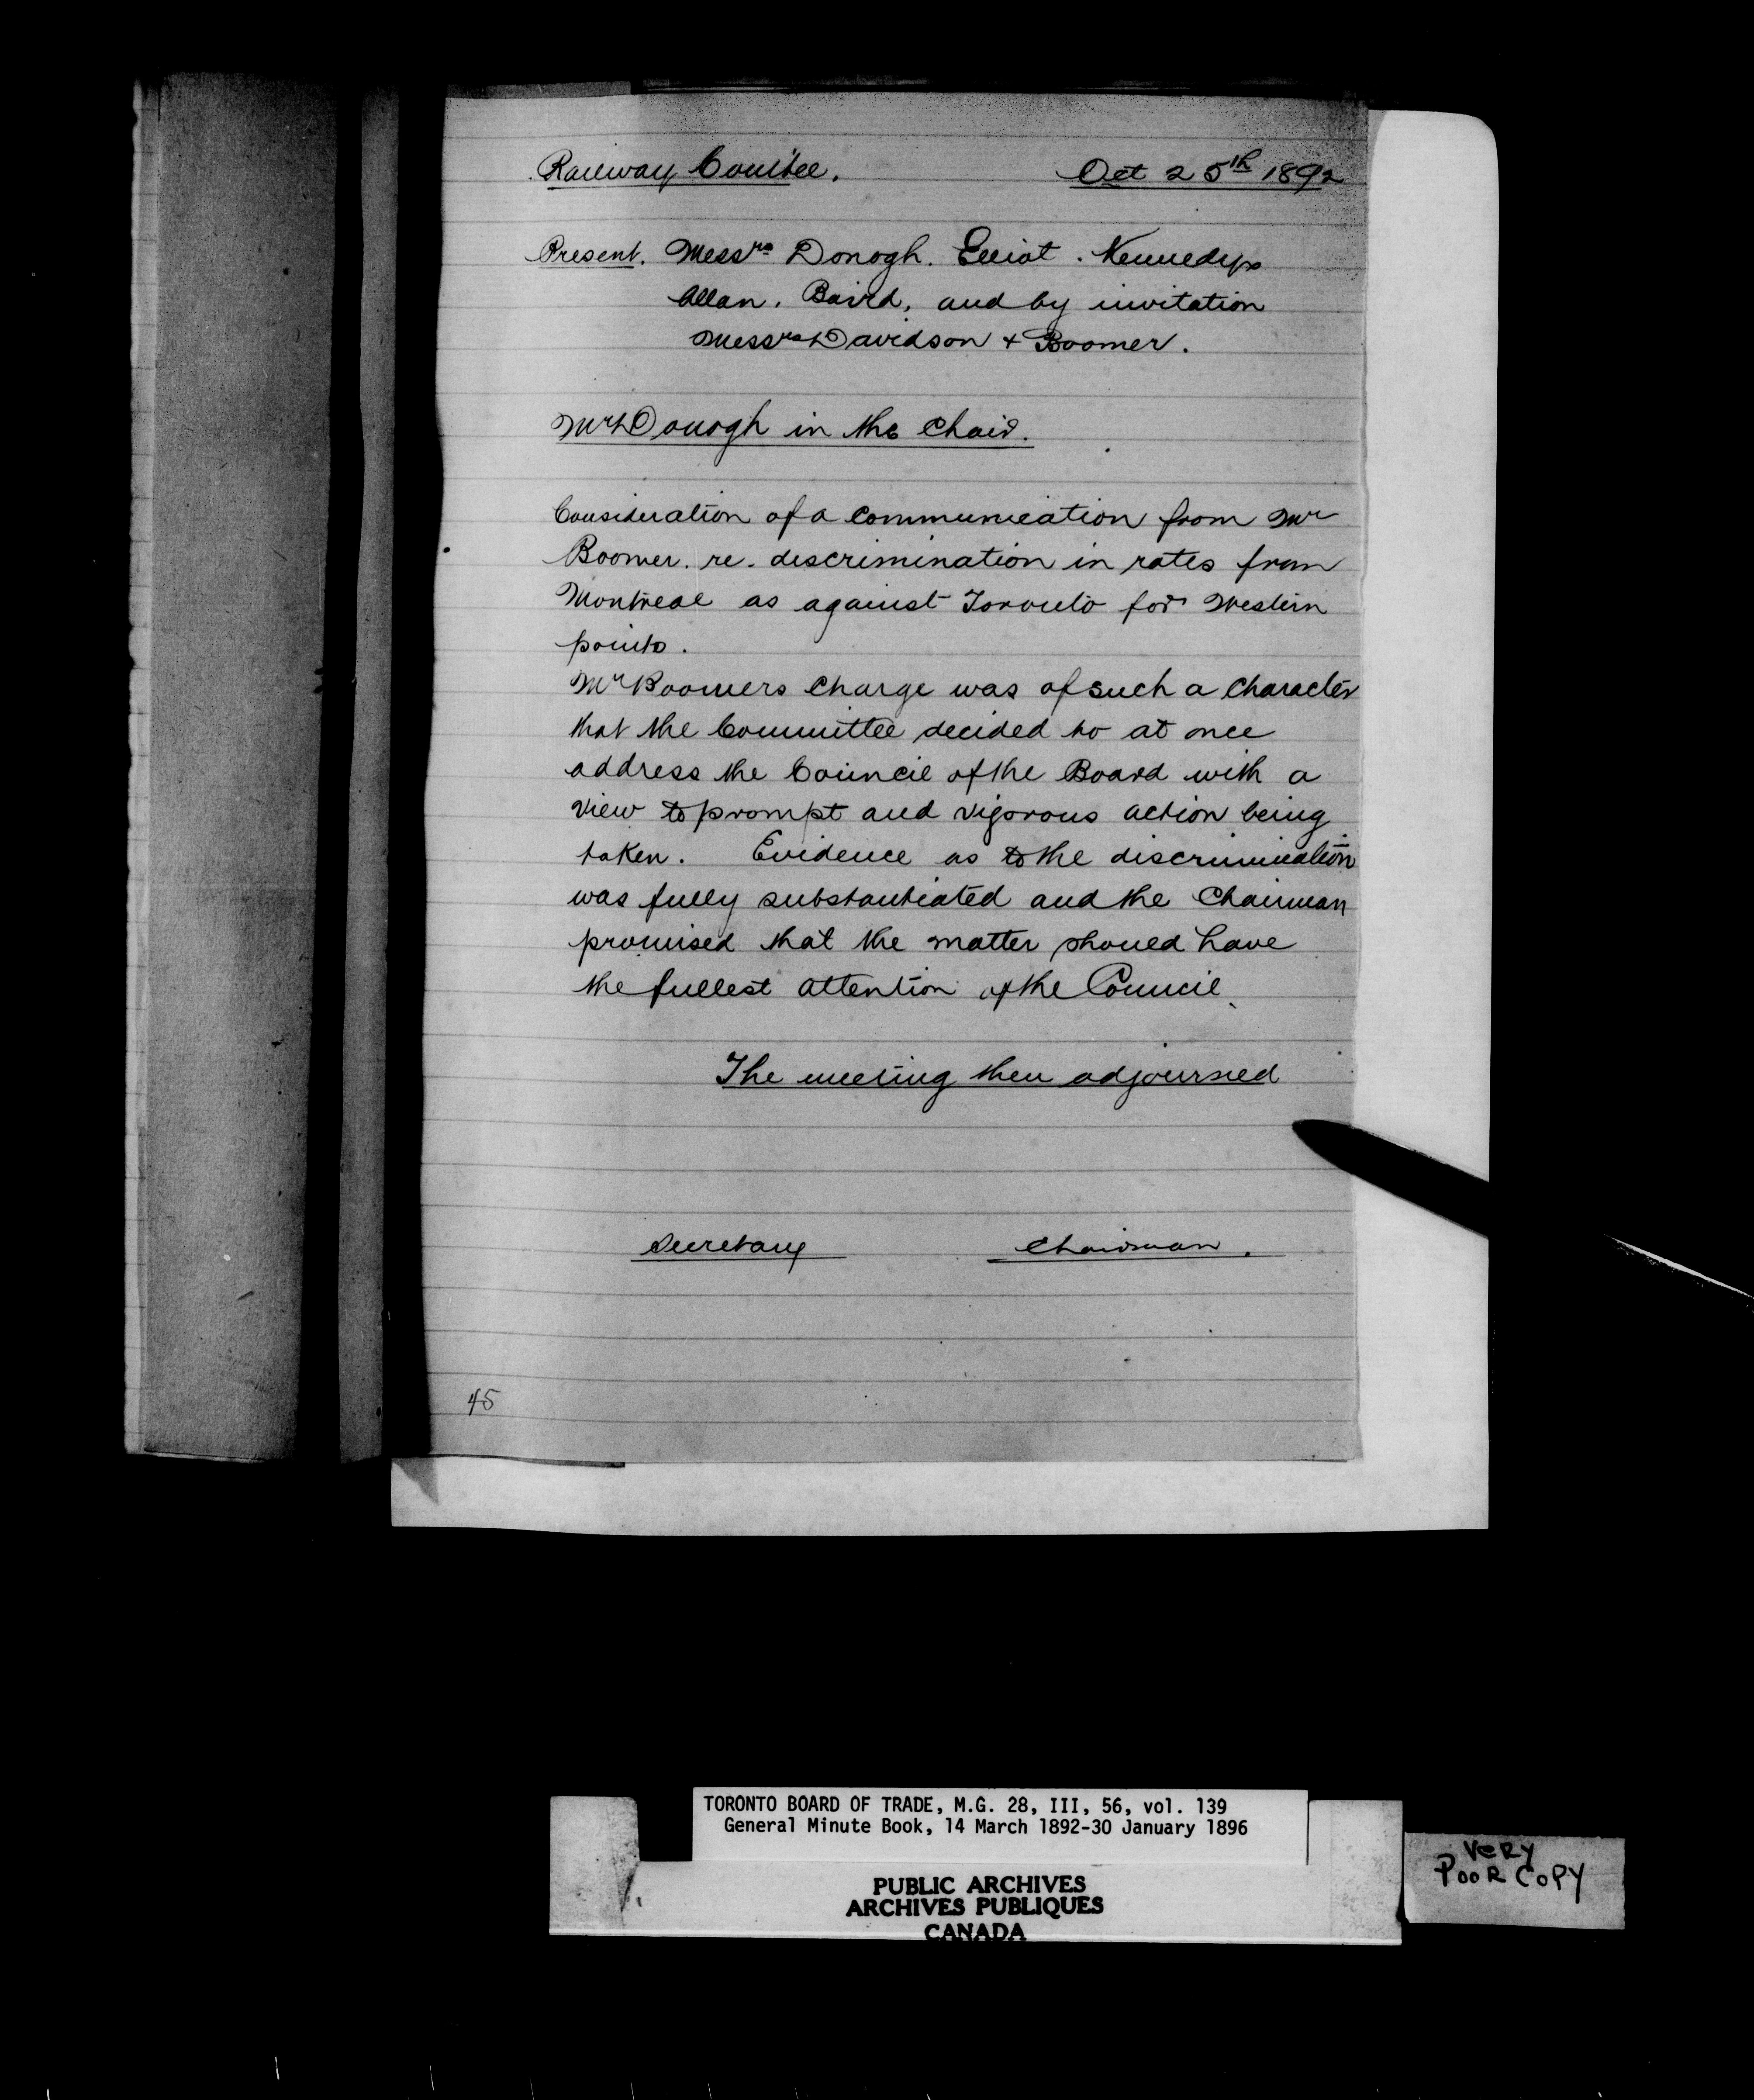 Railway Com'tee. Oct 25th 1892
Present. Messrs Donogh. Elliot. Kennedy
Allan. Baird, and by invitation
Messrs Davidson + Boomer.
Mr Donogh in the Chair.
Consideration of a Communication from Mr
Boomer. re. discrimination in rates from
Montreal as against Toronto for Western
points.
Mr Boomers Charge was of such a Character
that the Committee decided to at once
address the Council of the Board with a
view to prompt and vigorous action being
taken. Evidence as to the discrimination
was fully substantiated and the Chairman
promised that the matter should have
the fullest attention of the Council.
The meeting then adjourned
Secretary Chairman.
45
TORONTO BOARD OF TRADE, M.G. 28, III, 56, vol. 139
General Minute Book, 14 March 1892-30 January 1896
PUBLIC ARCHIVES
ARCHIVES PUBLIQUES
CANADA
VERY
POOR COPY